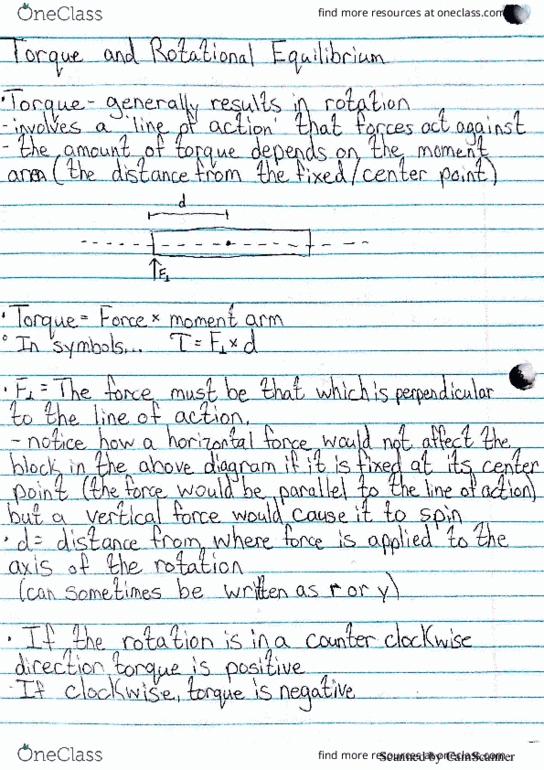 OneClass
find more resources at oneclass.com
Torque and Rotational Equilibrium
• Torque - generally results in rotation
- involves a 'line of action' that forces act against
- the amount of torque depends on the moment
area (the distance from the fixed/center point)
d
F⊥
• Torque = Force × moment arm
• In symbols... τ = F⊥ × d
• F⊥ = The force must be that which is perpendicular
to the line of action.
- notice how a horizontal force would not affect the
block in the above diagram if it is fixed at its center
point (the force would be parallel to the line of action)
but a vertical force would cause it to spin
• d = distance from where force is applied to the
axis of the rotation
(can sometimes be written as r or y)
• If the rotation is in a counter clockwise
direction torque is positive
• If clockwise, torque is negative
OneClass
find more resources at oneclass.com
Scanned by CamScanner